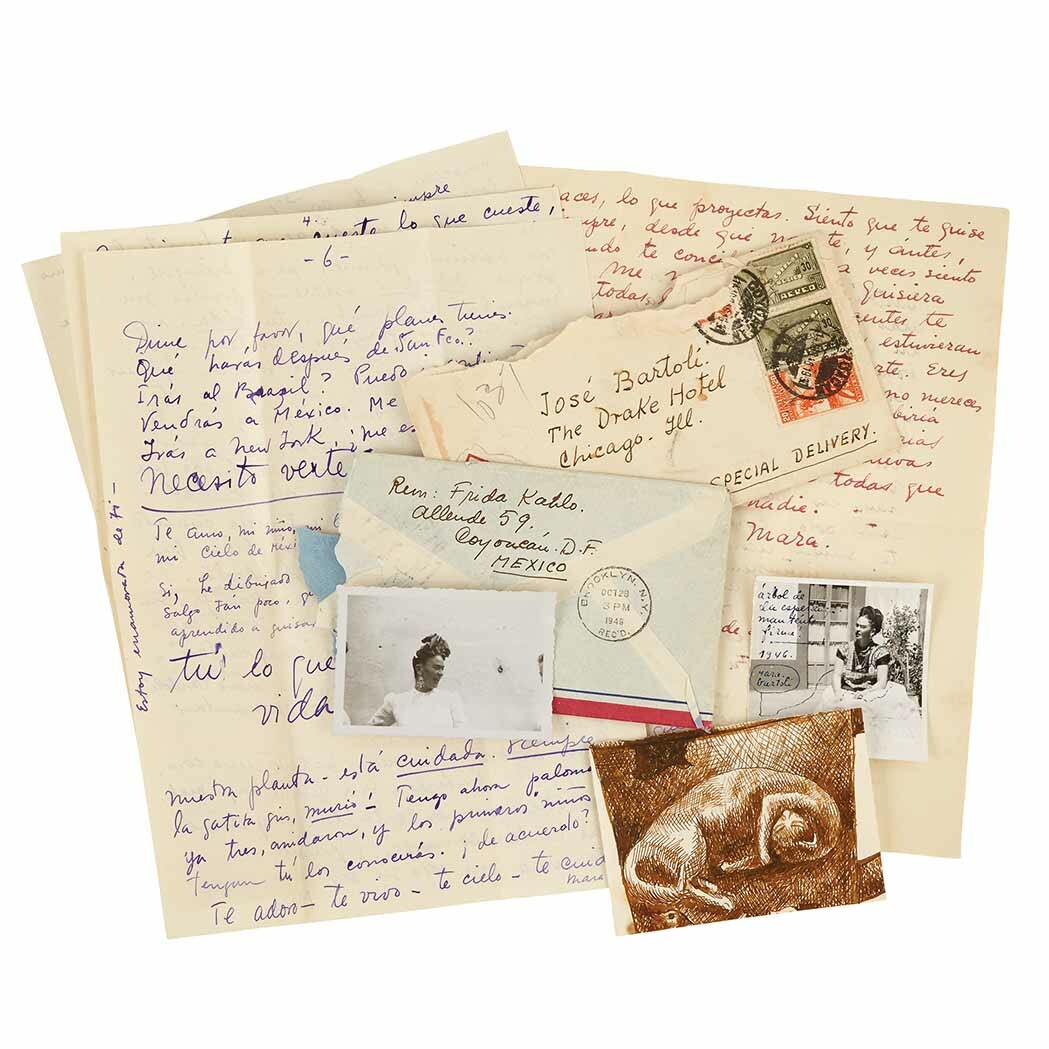 siempre
cueste lo que cueste,
- 6 -
Dime por favor, qué planes tienes.
Qué harás después de San Fco.?
Irás al Brazil? Puedo
Vendrás a México. Me
Irás a New York, ¡me es
Necesito verte -
Te amo, mi niño, mi
mi cielo de Méxi
Si, he dibujado
Salgo tan poco, q
aprendido a guisar
tú lo que
vida
Estoy enamorada de ti -
nuestra planta - está cuidada. Siempre
la gatita gris, murió! Tengo ahora paloma
ya tres, anidaron, y los primeros niños
tengan tú los conocerás. ¡de acuerdo?
Te adoro - te vivo - te cielo - te cuid
Mara
aces, lo que proyectas. Siento que te quise
mpre, desde que te, y ántes,
ndo te conci a veces siento
me
todas quisiera
entes te
estuvieran
rte. Eres
no mereces
biría
rias
uevas
todas que
nadie.
Mara.
de
30
AEREO
José Bartoli
The Drake Hotel
Chicago - Ill.
SPECIAL DELIVERY.
Rem: Frida Kahlo.
Allende 59.
Coyoacán. D.F.
MEXICO
BROOKLYN, N.Y.
OCT 28
3 PM
1946
REC'D.
árbol de
la espera
mantente
firme!
1946.
Mara
Bartoli